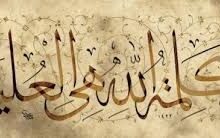 كلمة الله هي العليا